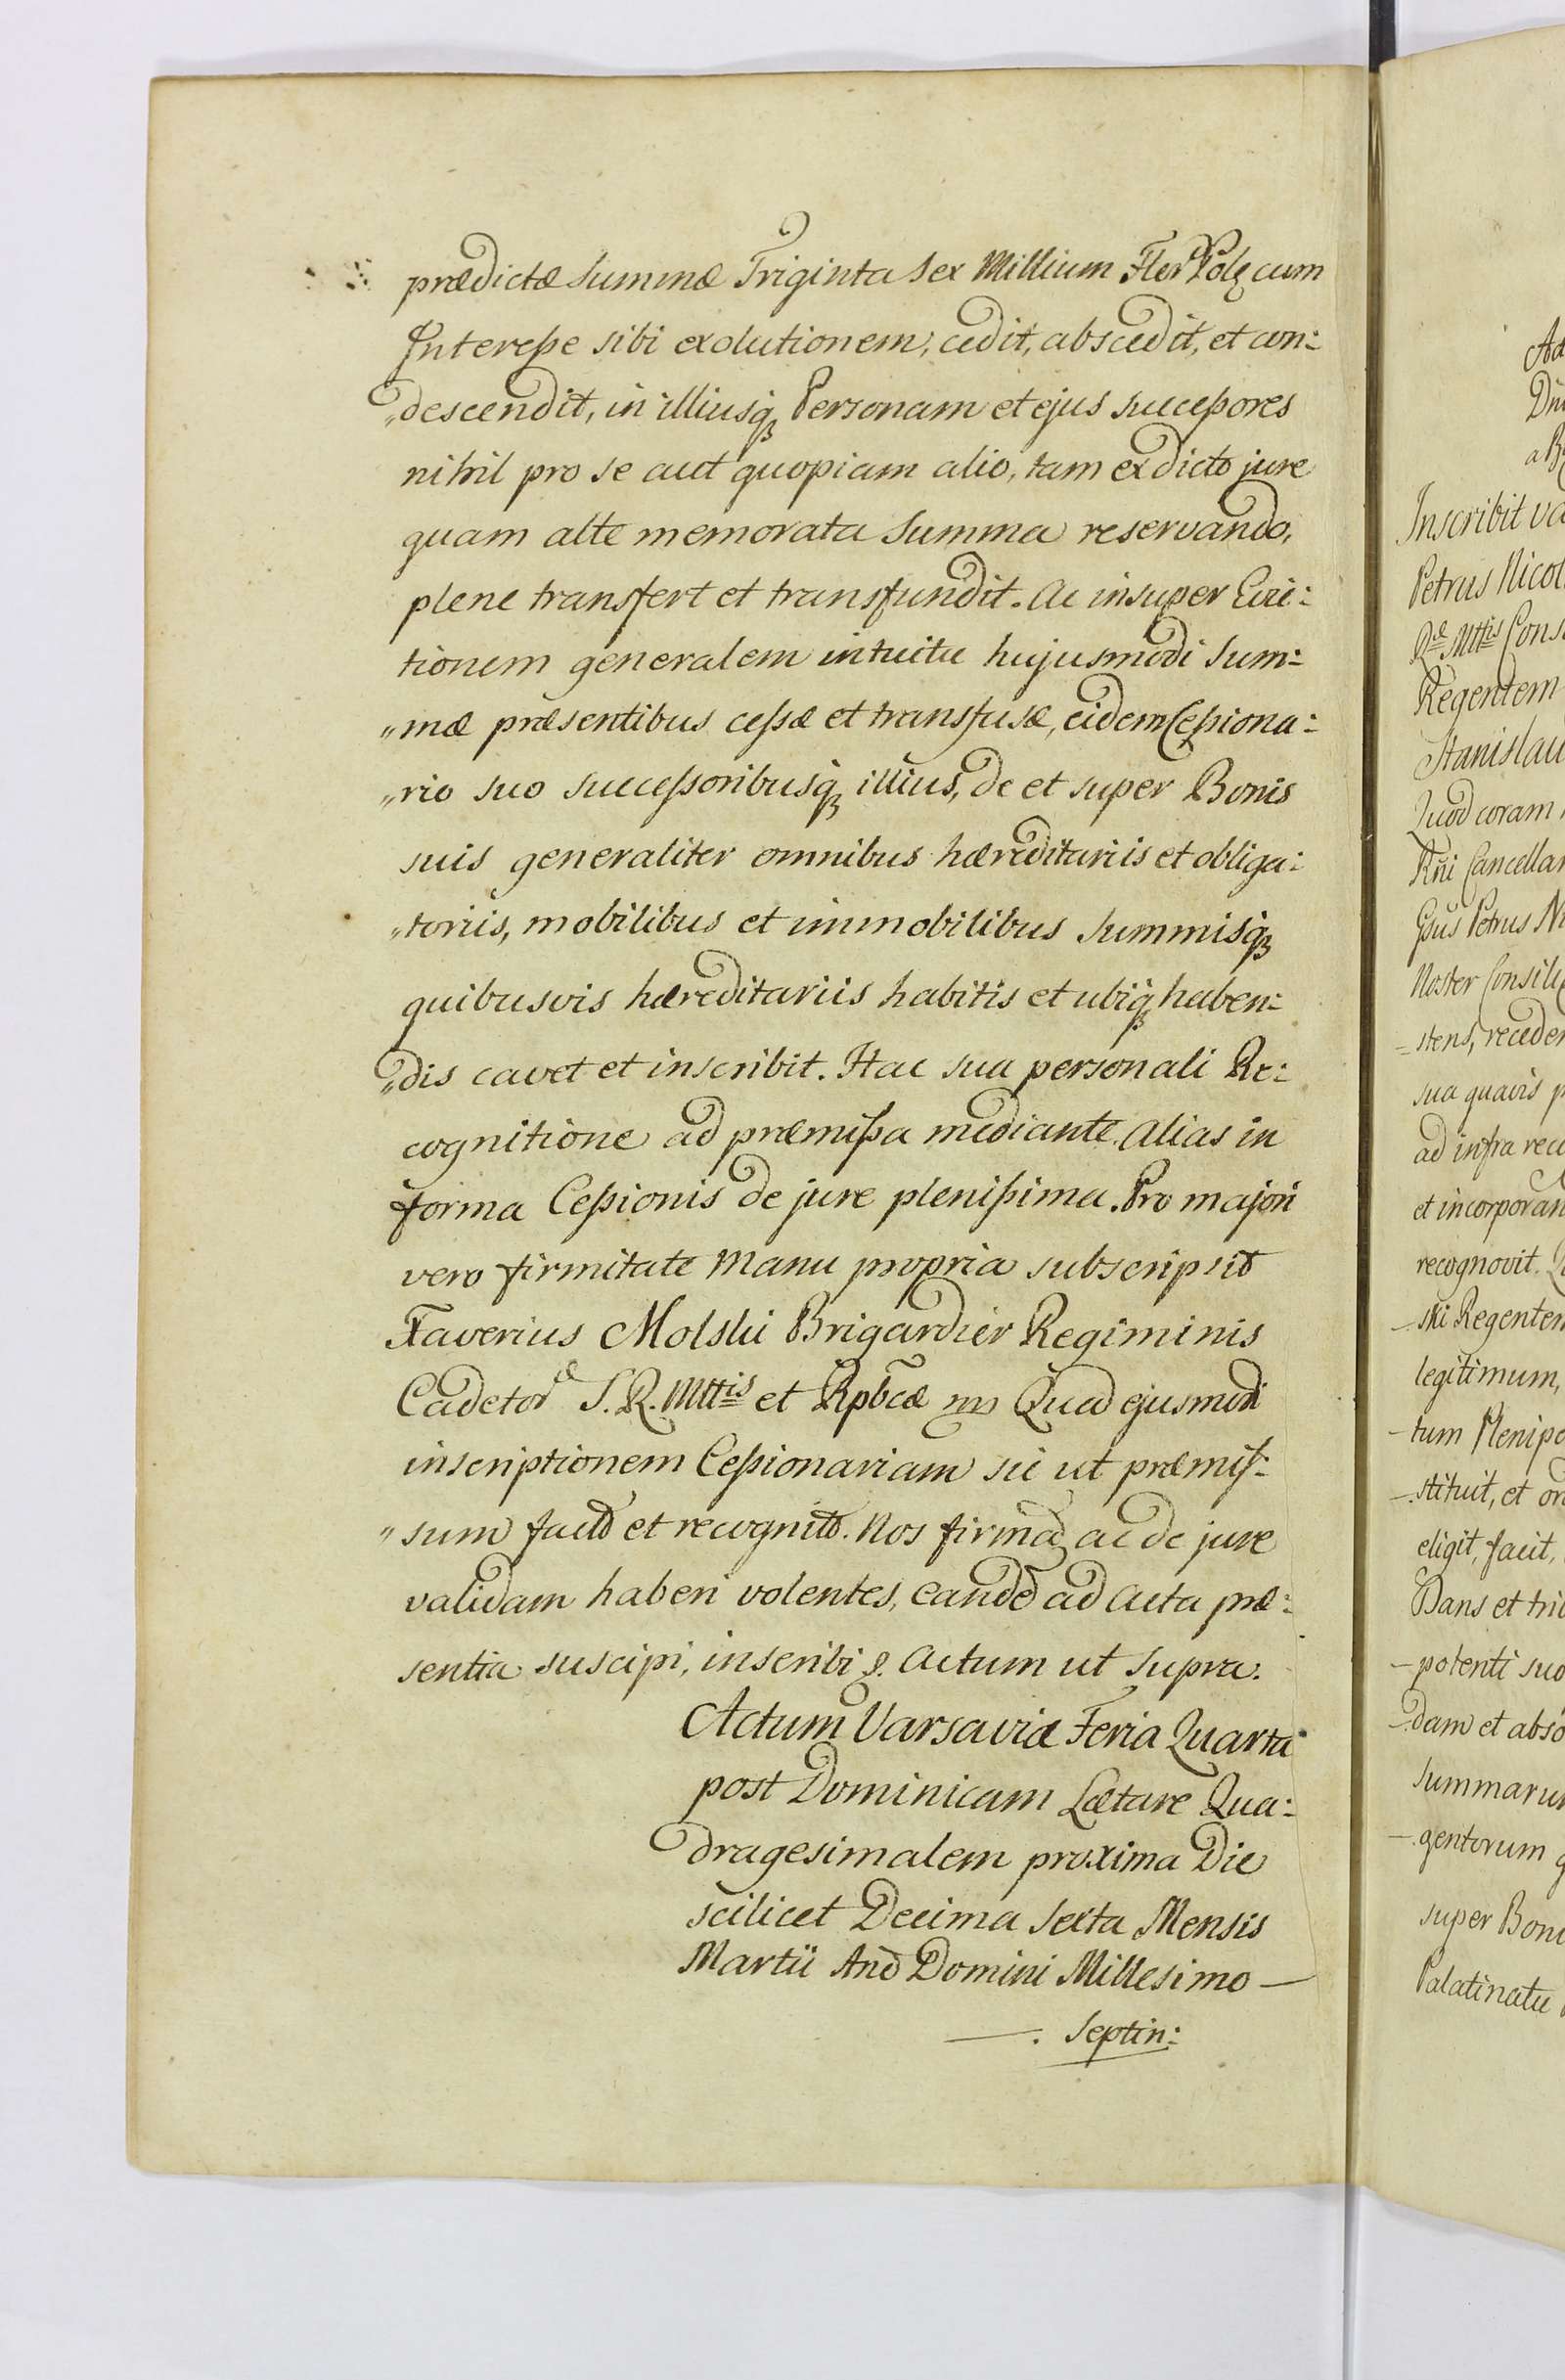 prædictæ Summæ Triginta Sex Millium Flor Polq cum
Interesse sibi exolutionem, cedit, abscedit, et con:
„descendit, in illiusq Personam et ejus successores
nihil pro se aut quopiam alio, tam ex dicto jure
quam alte memorata Summa reservando,
plene transfert et transfundit. Ac insuper Evic:
tionem generalem intuitu hujusmodi Sum:
„mæ præsentibus cessæ et transfusæ, eidem Cessiona:
„rio suo successoribusq illius, de et super Bonis
suis generaliter omnibus hæreditariis et obliga:
„toriis, mobilibus et immobilibus Summisq
quibusvis hæreditariis habitis et ubiq haben:
„dis cavet et inscribit. Hac sua personali Re:
cognitione ad præmissa mediante. Alias in
forma Cessionis de jure plenissima. Pro majori
vero firmitate manu propria subscripsit
Xaverius Molski Brigardier Regiminis
Cadetor S. R. Mttis et Rpbcæ mp Quod ejusmodi
inscriptionem Cessionariam sic ut præmis:
„sum fact et recognit. Nos firmã ac de jure
validam haberi volentes, eandẽ ad Acta præ:
sentia suscipi, inscribi &. Actum ut Supra.
Actum Varsaviæ Feria Quarta
post Dominicam Lætare Qua:
dragesimalem proxima Die
scilicet Decima Sexta Mensis
Martii Anõ Domini Millesimo —
—. Septin:
Inscribit
Petrus
Mttis
Regentem
Quod coram
Rñi
Petrus
Noster
sua quavis
ad infra
recognovit.
-ski
legitimum,
-tum
-stituit, et
eligit, facit,
Dans et
-potenti suo
-dam et
-gentorum
super
Palatinatu